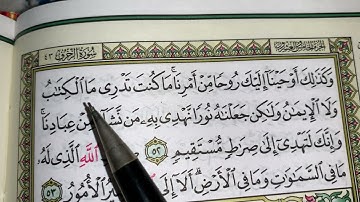 سُورَةُ الزُّخْرُفِ ٤٣
وَكَذَٰلِكَ أَوْحَيْنَا إِلَيْكَ رُوحًا مِنْ أَمْرِنَا ۚ مَا كُنْتَ تَدْرِى مَا الْكِتَٰبُ
وَلَا الْإِيمَٰنُ وَلَٰكِنْ جَعَلْنَٰهُ نُورًا نَهْدِى بِهِۦ مَنْ نَشَآءُ مِنْ عِبَادِنَا ۚ
وَإِنَّكَ لَتَهْدِى إِلَىٰ صِرَٰطٍ مُسْتَقِيمٍ ٥٢ اللَّهِ الَّذِى لَهُۥ
مَا فِى السَّمَٰوَٰتِ وَمَا فِى الْأَرْضِ ۗ أَلَآ إِلَى الْأُمُورُ ٥٣